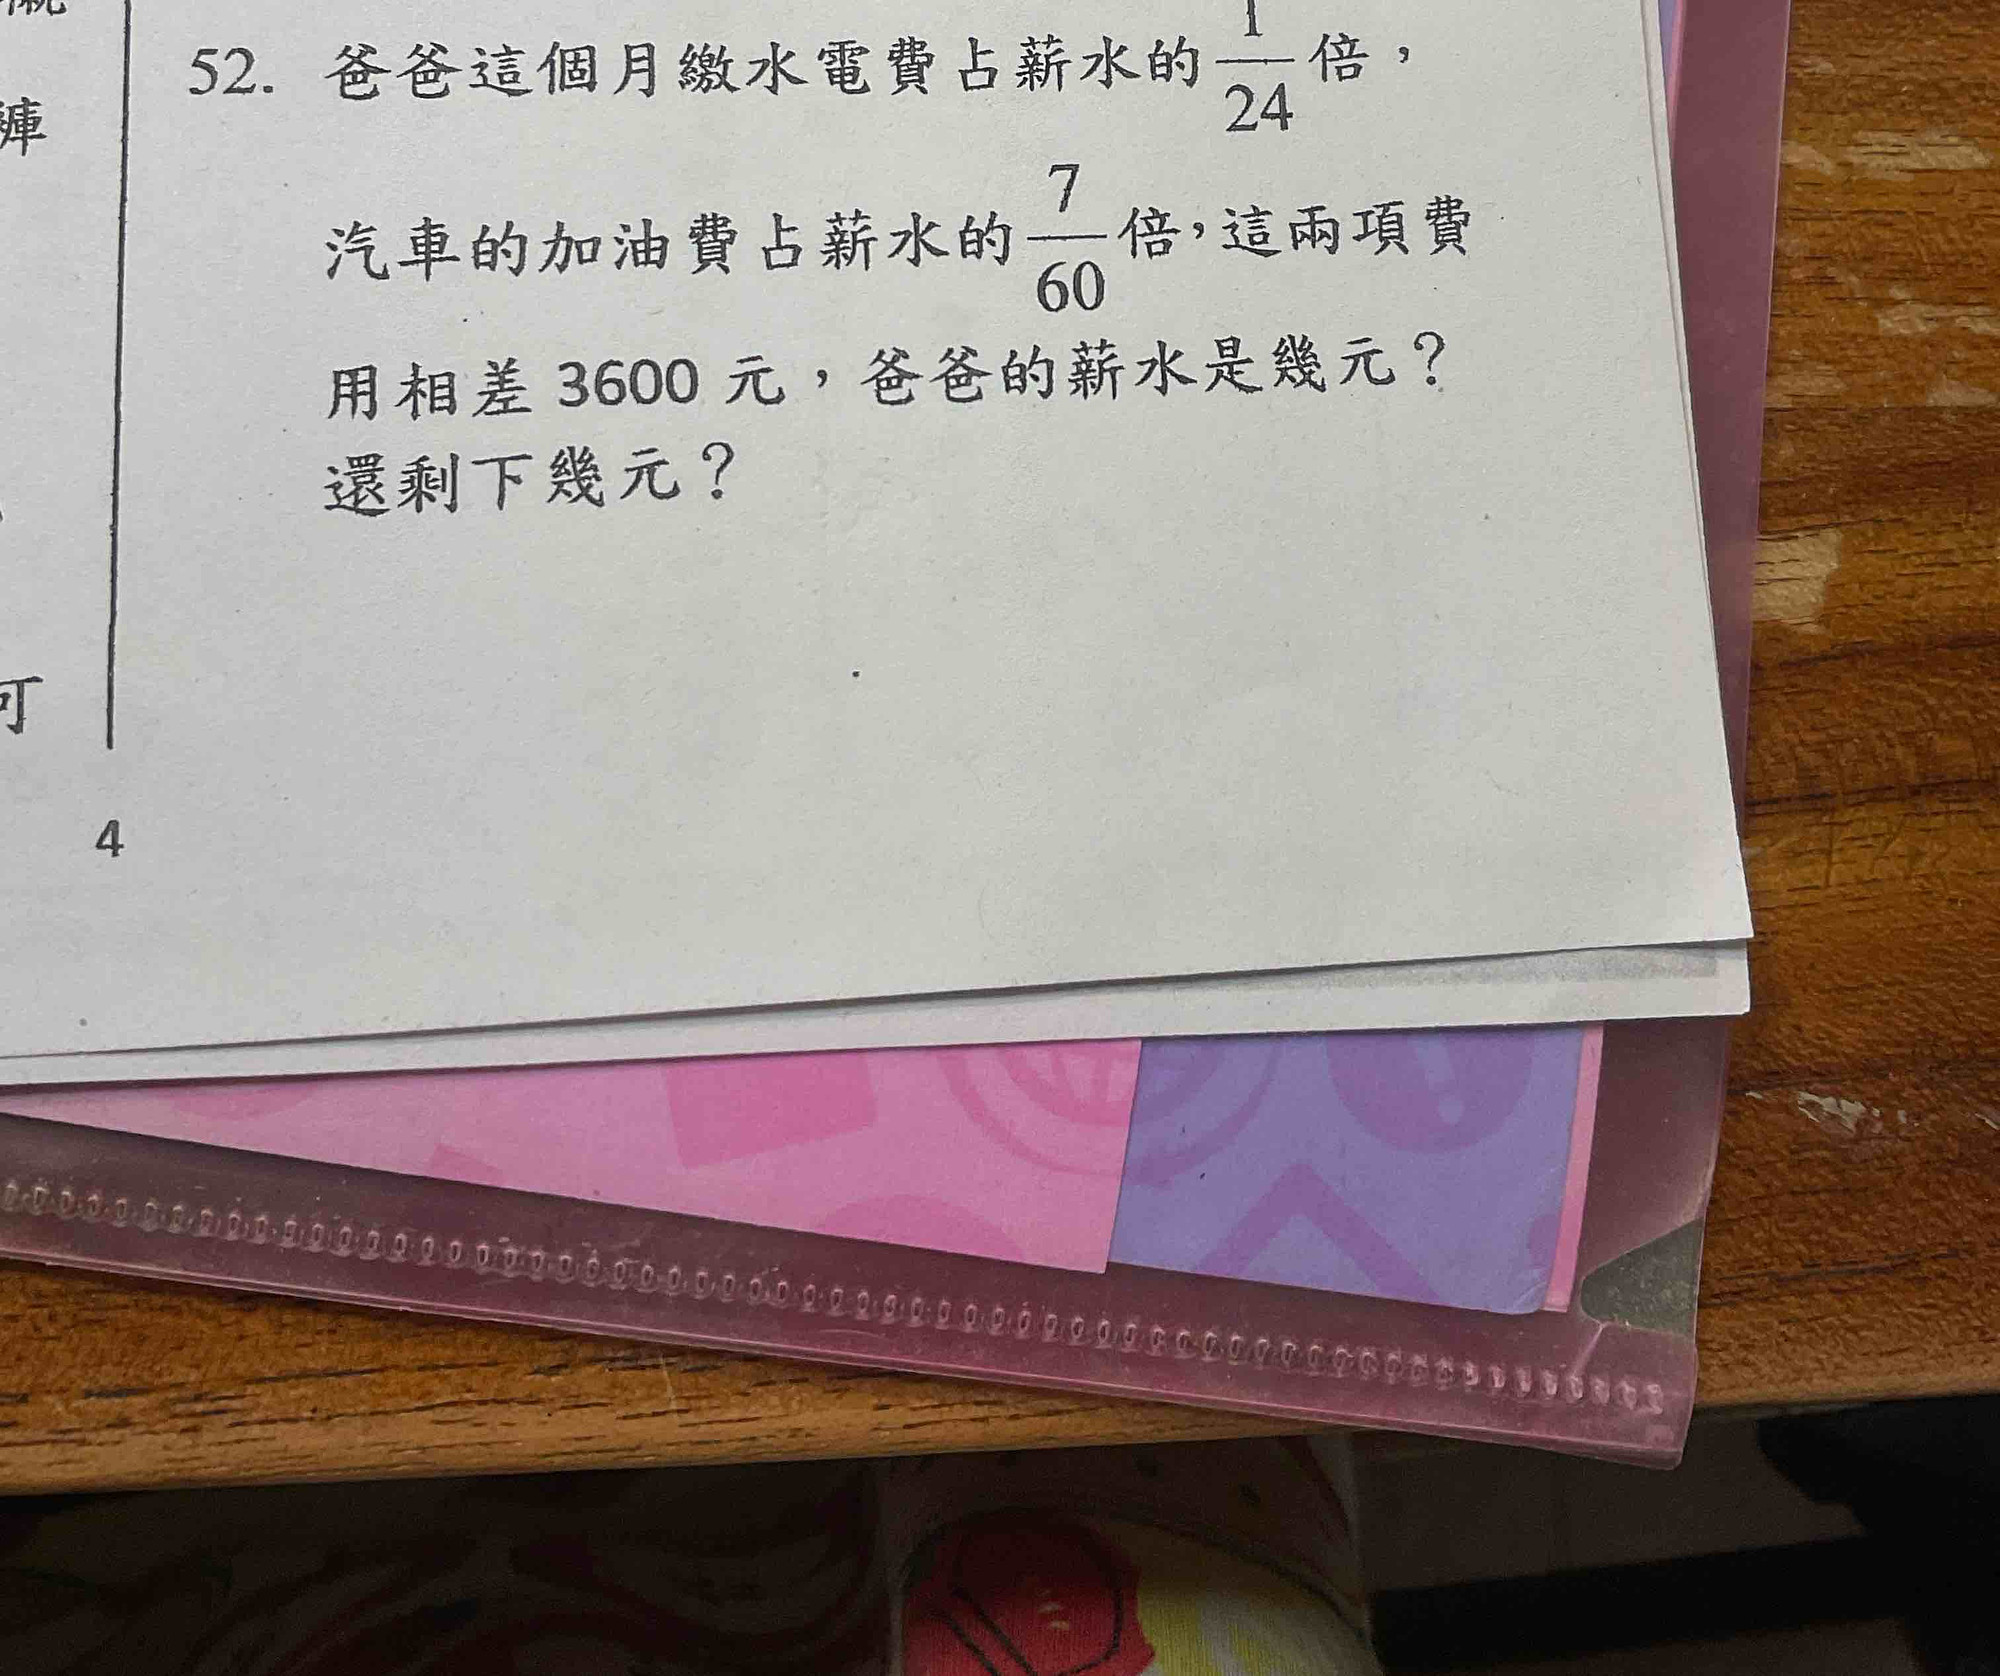 褲
可
4
52. 爸爸這個月繳水電費占薪水的 1/24 倍，
汽車的加油費占薪水的 7/60 倍，這兩項費
用相差 3600 元，爸爸的薪水是幾元？
還剩下幾元？